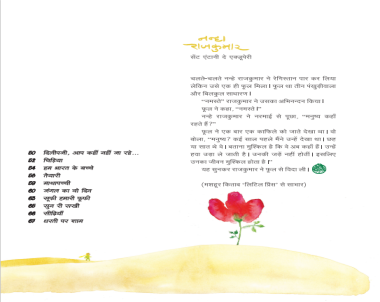 नन्हा
राजकुमार
सेंट एंटानी दे एक्जूपेरी
चलते-चलते नन्हे राजकुमार ने रेगिस्तान पार कर लिया
लेकिन उसे एक ही फूल मिला। फूल था तीन पंखुड़ीवाला
और बिलकुल साधारण।
"नमस्ते" राजकुमार ने उसका अभिनन्दन किया।
फूल ने कहा, "नमस्ते।"
नन्हे राजकुमार ने नरमाई से पूछा, "मनुष्य कहाँ
रहते हैं?"
फूल ने एक बार एक काफिले को जाते देखा था। वो
बोला, "मनुष्य? कई साल पहले मैंने उन्हें देखा था। छह
या सात थे वे। बताना मुश्किल है कि वे अब कहाँ हैं। उन्हें
हवा उड़ा ले जाती है। उनकी जड़ें नहीं होतीं। इसलिए
उनका जीवन मुश्किल होता है।"
यह सुनकर राजकुमार ने फूल से विदा ली।
(मशहूर किताब "लिटिल प्रिंस" से साभार)
50 दिलीपजी, आप कहीं नहीं जा रहे...
52 चिड़िया
54 हम भारत के बच्चे
56 तैयारी
59 माथापच्ची
60 जंगल का वो दिन
62 सूकी हमारी फूफी
65 सुन री सखी
66 सीढ़ियाँ
67 धरती पर शाम